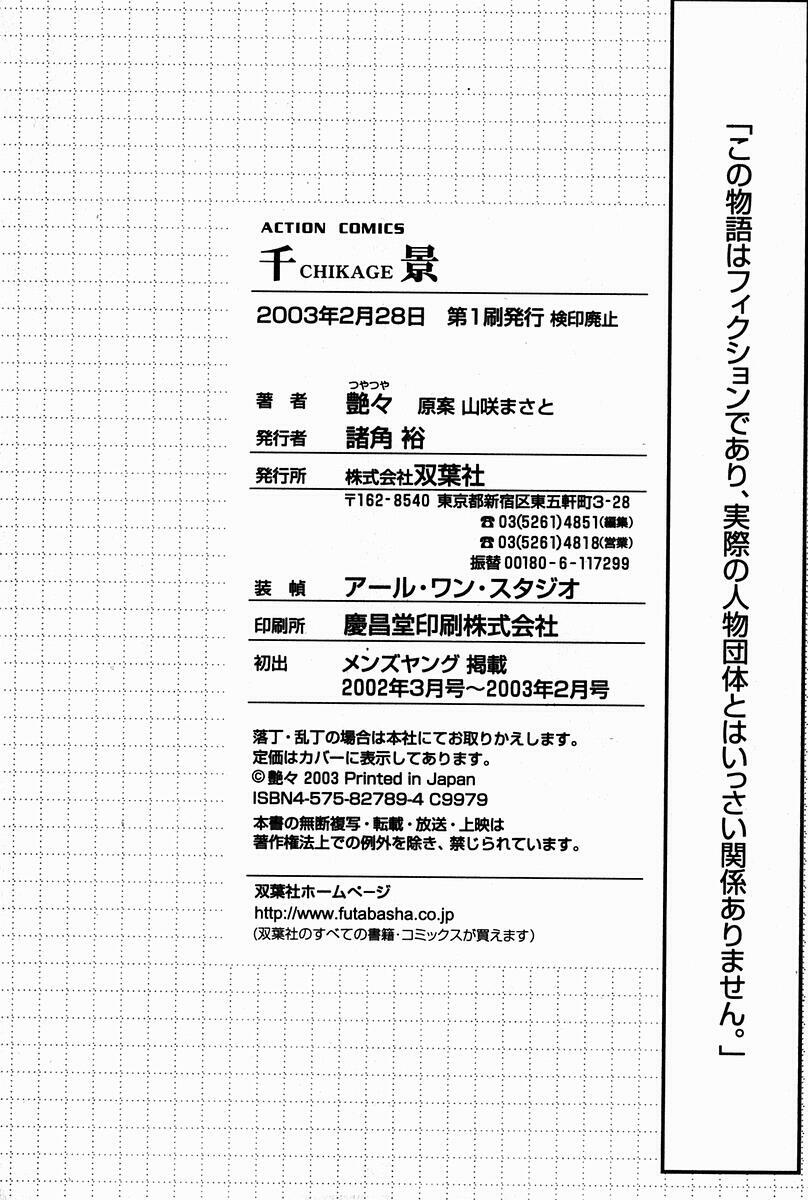 「この物語はフィクションであり、実際の人物団体とはいっさい関係ありません。」
ACTION COMICS
千 CHIKAGE 景
2003年2月28日 第1刷発行 検印廃止
つやつや
著者 艶々 原案 山咲まさと
発行者 諸角 裕
発行所 株式会社双葉社
〒162-8540 東京都新宿区東五軒町3-28
☎03(5261)4851(編集)
☎03(5261)4818(営業)
振替00180-6-117299
装幀 アール・ワン・スタジオ
印刷所 慶昌堂印刷株式会社
初出 メンズヤング 掲載
2002年3月号～2003年2月号
落丁・乱丁の場合は本社にてお取りかえします。
定価はカバーに表示してあります。
©艶々 2003 Printed in Japan
ISBN4-575-82789-4 C9979
本書の無断複写・転載・放送・上映は
著作権法上での例外を除き、禁じられています。
双葉社ホームページ
http://www.futabasha.co.jp
(双葉社のすべての書籍・コミックスが買えます)